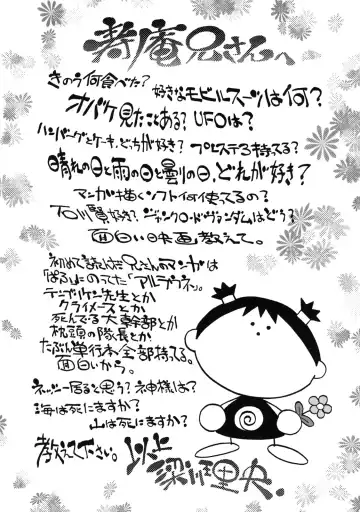 寿庵兄さんへ
きのう何食べた?
好きなモビルスーツは何?
オバケ見たことある? UFOは?
ハンバーグとケーキ、どっちが好き? プレステ3持ってる?
晴れの日と雨の日と曇りの日、どれが好き?
マンガ描くソフト何使ってるの?
石川賢好き? ジャン・クロード・ヴァンダムはどう?
面白い映画教えて。
初めて読んだ兄さんのマンガは
「ぱる」にのってた「アルラウネ」。
テンプリケン先生とか
クライメーズとか
死んでる大幹部とか
枕頭の隊長とか
たぶん単行本全部持ってる。
面白いから。
ネッシー居ると思う? 神様は?
海は死にますか?
山は死にますか?
教えて下さい。以上
梁 里央。